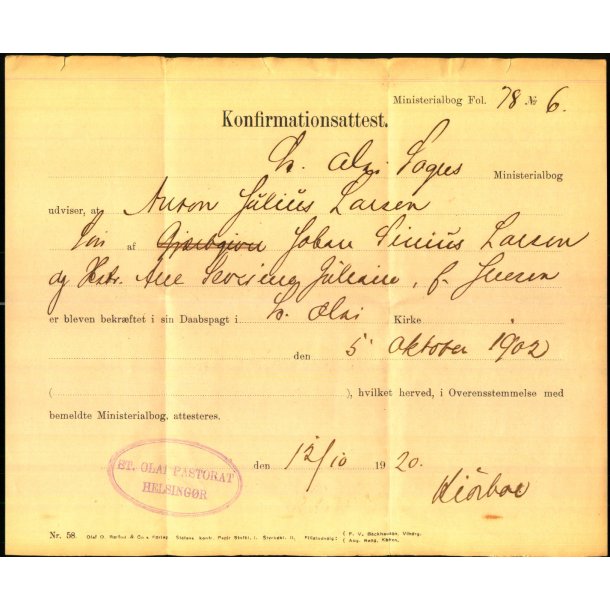 Ministerialbog Fol. 78 № 6.
Konfirmationsattest.
St. Olai Sogns Ministerialbog
udviser, at Anton Julius Larsen
Søn af Johan Sinius Larsen
og Hstr. Ane Juliane, f. Jensen
er bleven bekræftet i sin Daabspagt i St. Olai Kirke
den 5 Oktober 1902
( ), hvilket herved, i Overensstemmelse med
bemeldte Ministerialbog, attesteres.
ST. OLAI PASTORAT
HELSINGØR
den 12/10 1920.
Kiörboe
Nr. 58. Olaf O. Barfod & Co.s Forlag. Statens kontr. Papir Stofkl. I. Styrkekl. II. F. V. Backhausen, Viborg.